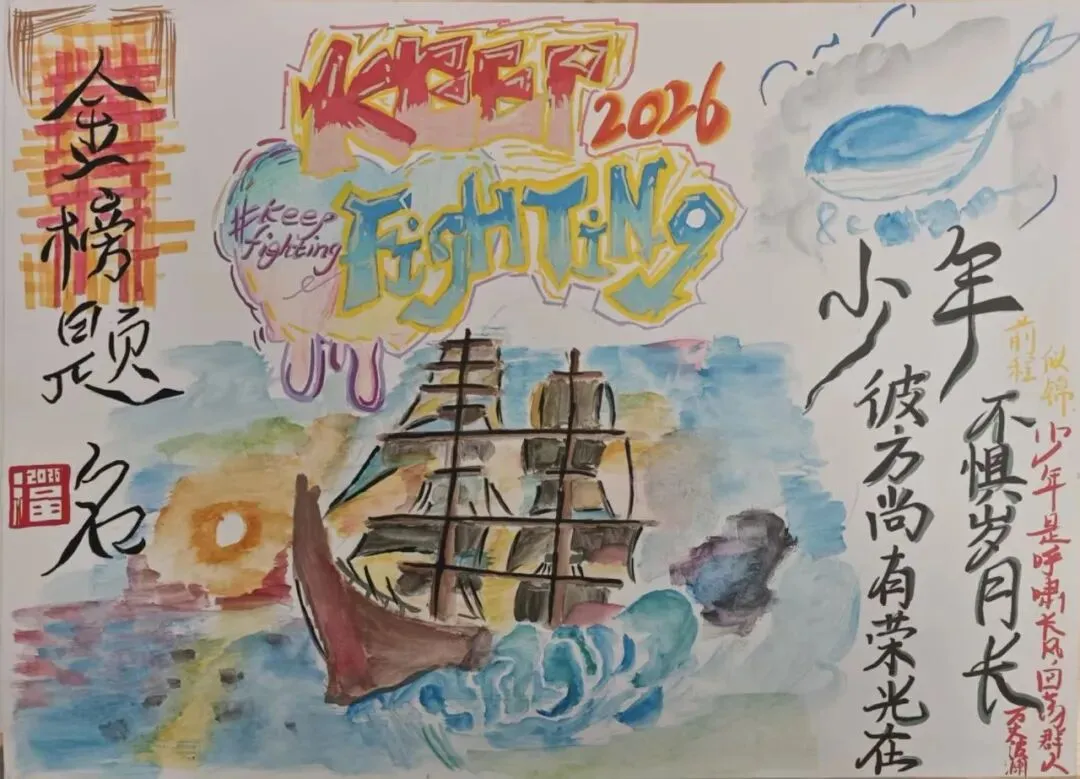 金榜题名
福
KEEP
2026
FigHTiNg
#keep
fighting
少年
不惧岁月长
彼方尚有荣光在
前程
似锦
少年是呼啸长风,回荡群山
万丈